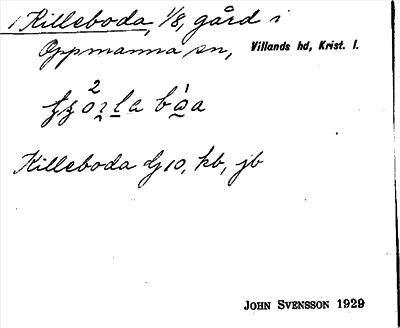 1 Killeboda, 1/8, gård i
Oppmanna sn, Villands hd, Krist. l.
Killeboda G 10, kb, jb
JOHN SVENSSON 1929